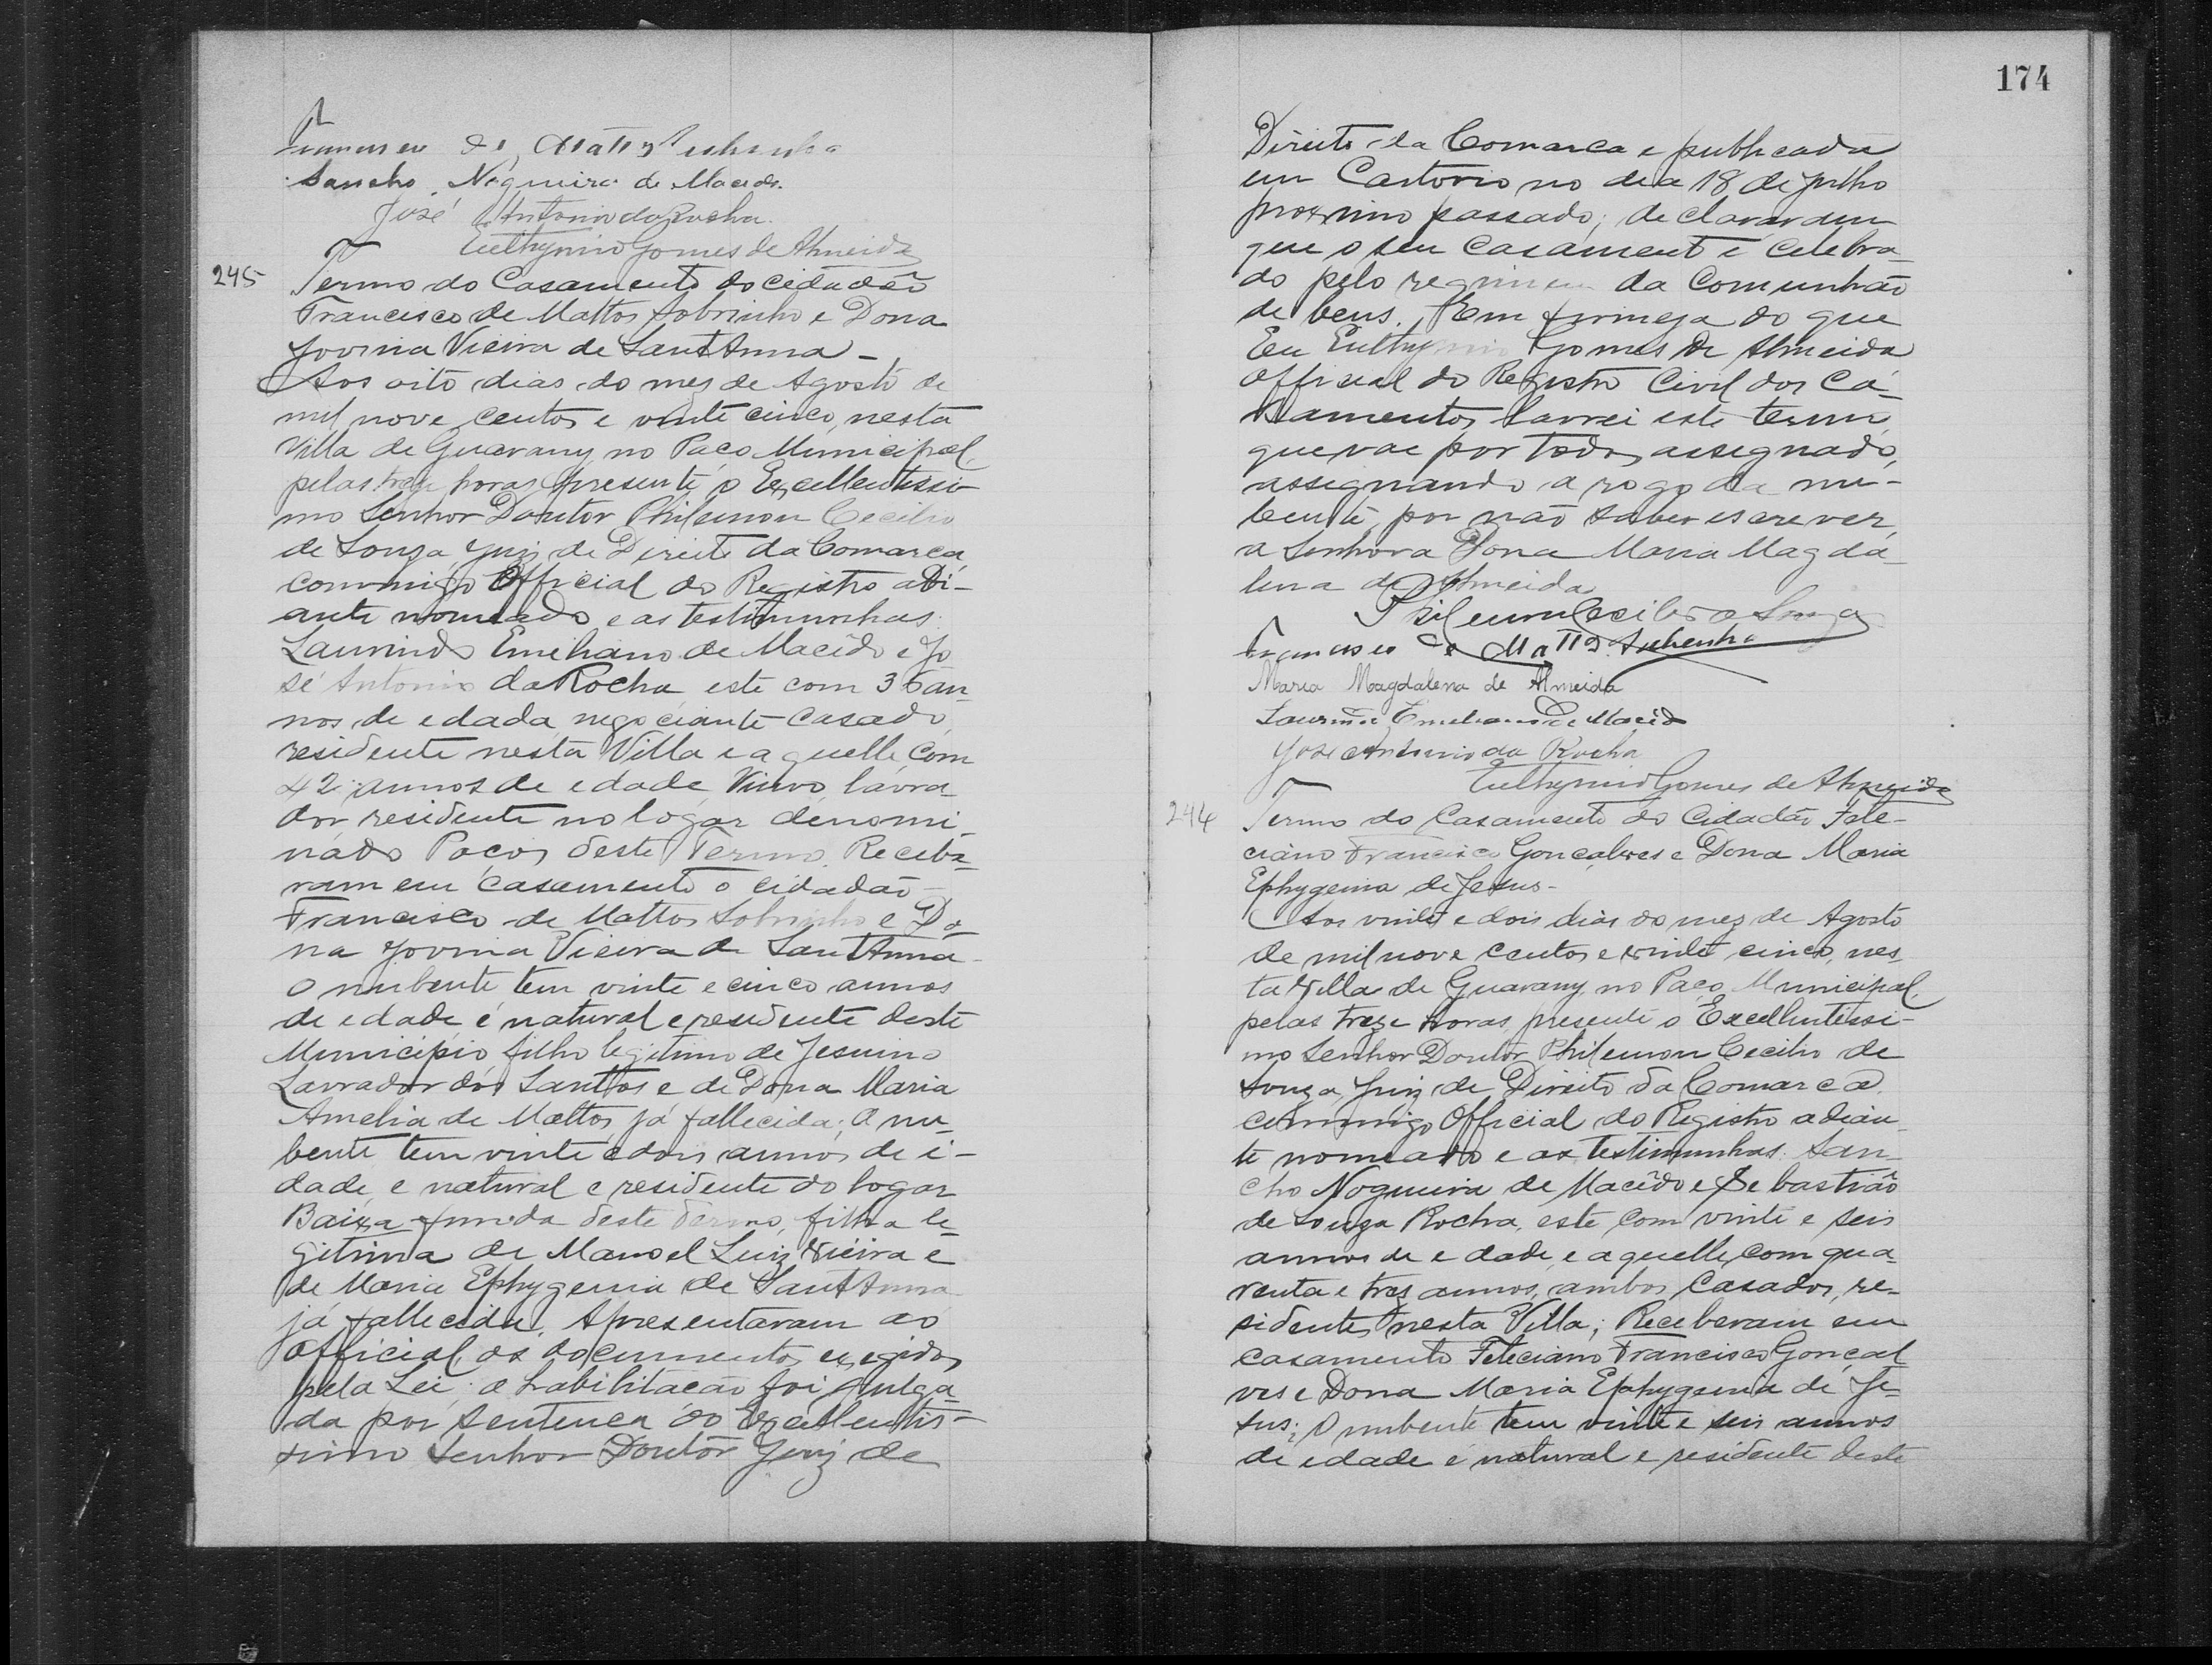 Francisco de Mattos Sobrinho
Sancho Nogueira de Macedo.
José Antonio da Rocha.
Euthymio Gomes de Almeida
245 Termo do Casamento do cidadão
Francisco de Mattos Sobrinho e Dona
Jovina Vieira de Sant'Anna -
Aos oito dias do mez de Agosto de
mil nove centos e vinte cinco, nesta
Villa de Guarany, no Paço Municipal,
pelas treze horas, presente o Excellentissi-
mo Senhor Doutor Philemon Cecilio
de Souza, Juiz de Direito da Comarca,
commigo Official do Registro adi-
ante nomeado e as testimunhas:
Laurindo Emeliano de Macêdo e Jo
sé Antonio da Rocha este com 36 an
nos de edada, negociante casado,
residente nesta Villa e aquelle, com
42 annos de edade, Viuvo, lavra-
dor residente no logar denomi-
nado Poços deste Termo. Recebe-
ram em casamento o cidadão -
Francisco de Mattos Sobrinho e Do-
na Jovina Vieira de Sant'Anna -
O nubente tem vinte e cinco annos
de edade é natural e residente deste
Municipio filho legitimo de Jesuino
Lavrador dos Santtos e de Dona Maria
Amelia de Mattos, já fallecida; A nu-
bente tem vinte e dois annos de i-
dade, e natural e residente do logar
Baixa funda deste Termo, filha le-
gitima de Manoel Luiz Vieira e
de Maria Ephygenia de Sant'Anna
já fallecida. Apresentaram ao
Official, os documentos exegidos
pela Lei; a habilitacão foi julga-
da por sentença do Excellentis-
simo Senhor Doutor Juiz de
174
Direito da Comarca e publicada
em Cartorio no dia 18 de Julho
proximo passado; declararam
que o seu casamento é celebra-
do pelo regimem da Comunhão
de bens. Em firmeza do que
Eeu Euthymio Gomes de Almeida
Official do Registro Civil dos Ca-
samentos lavrei este termo,
que vae por todos assegnado,
assegnando a rogo da nu-
bente, por não saber escrever,
a Senhora Dona Maria Magda-
lena de Almeida
Philemon Cecilio de Souza
Francisco de Mattos Sobrinho
Maria Magdalena de Almeida
Laurindo Emeliano de Macêdo
José Antonio da Rocha
Euthymio Gomes de Almeida
244 Termo do Casamento do Cidadão Fele-
ciano Francisco Gonçalves e Dona Maria
Ephygenia de Jesus -
Aos vinte e dois dias do mez de Agosto
de mil nove centos e vinte cinco, nes-
ta Villa de Guarany, no Paço Municipal,
pelas treze horas, presente o Excellentissi-
mo Senhor Doutor Philemon Cecilio de
Souza, Juiz de Direito da Comarca,
commigo Official do Registro adian-
te nomeado e as testimunhas: San-
cho Nogueira de Macêdo e Sebastião
de Souza Rocha, este com vinte e seis
annos de edade, e aquelle, com qua-
renta e trez annos, ambos casados, re-
sidentes nesta Villa; Receberam em
casamento Feleciano Francisco Gonçal
ves e Dona Maria Ephygenia de Je-
sus; O nubente tem vinte e seis annos
de edade é natural e residente deste